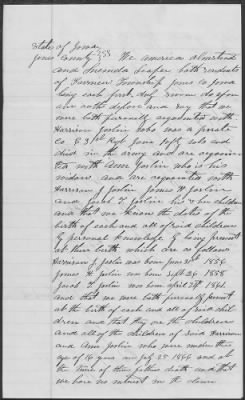 State of Iowa
Jones County } SS We America Olmstead
and Lucinda Leaper both residents
of Farmer Township Jones Co Iowa
being each first duly sworn do upon
our oaths depose and say that we
were both personally acquainted with
Harrison Joslin who was a private
Co E 31st Regt Iowa Infty vols and
died in the army and are acquain
ted with Ann Joslin who is his
widow and are acquainted with
Harrison J Joslin James H Joslin
and Jacob T Joslin his children
and that we know the dates of the
birth of each and all of said children
by personal knowledge of being present
at their birth which are as follows
Harrison J. Joslin was born June 1854
James H Joslin was born Sept 24 1858
Jacob T Joslin was born April 28th 1861
and that we were both personally present
at the birth of each and all of said chil
dren and that they are the children
and all of the children of said Harrison
and Ann Joslin who were under the
age of 16 years on July 25 1864 and at
the time of their fathers death and that
we have no interest in the claim